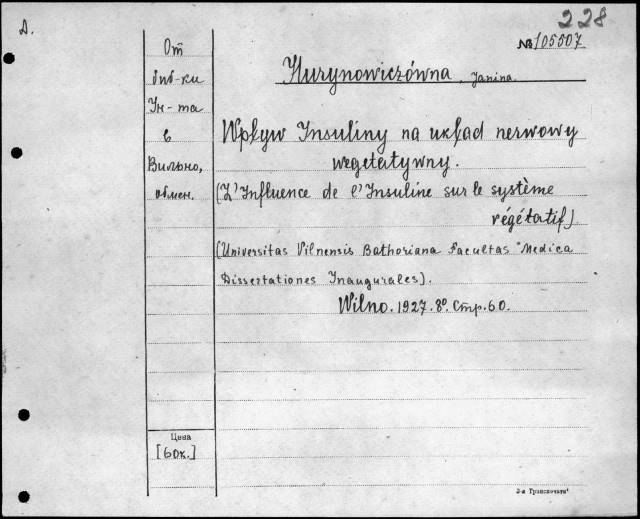 Д.
228
№ 105507
От
биб-ки
Ин-та
в
Вильно,
обмен.
Hurynowiczówna, Janina.
Wpływ Insuliny na układ nerwowy
wegetatywny.
(L'Influence de l'Insuline sur le système
végétatif)
(Universitas Vilnensis Bathoriana Facultas Medica
Dissertationes Inaugurales).
Wilno. 1927. 8º. Стр. 60.
Цена
[60к.]
3-я Транспечать